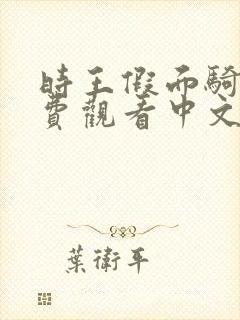 時王假面騎
費觀看中文
葉衛平